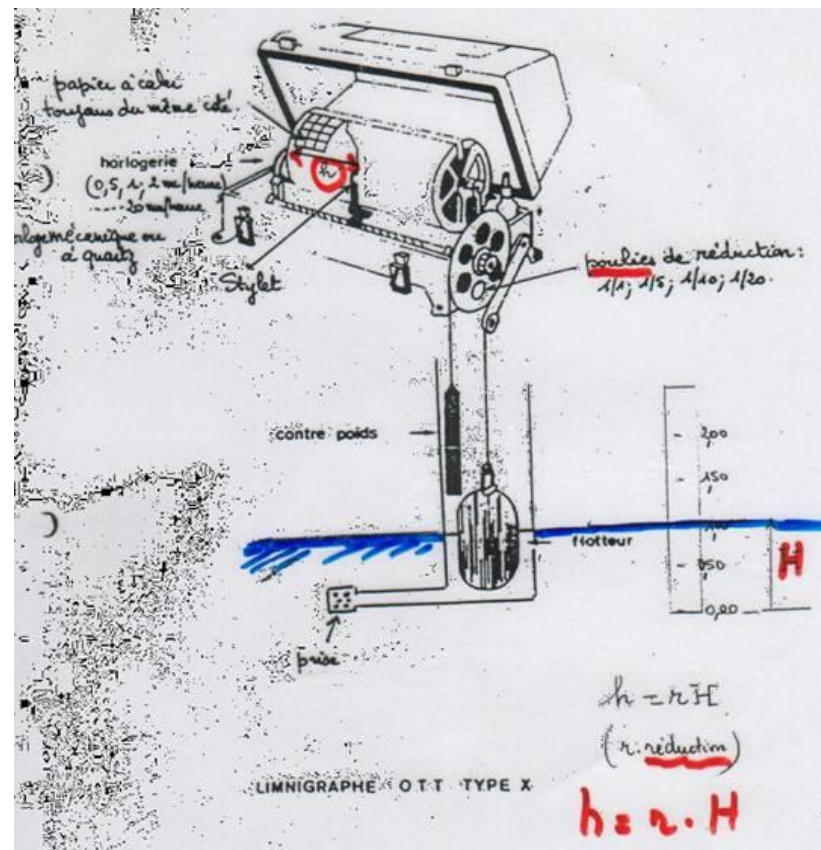 papier à caler
toujours du même côté
horlogerie
(0,5, 1, 2 mm/heure)
20 mm/heure
mécanique ou
à quartz
Stylet
h
poulies de réduction:
1/1; 1/5; 1/10; 1/20.
contre poids
2,00
1,50
1,00
0,50
0,00
flotteur
H
prise
h = r H
(r: réduction)
LIMNIGRAPHE OTT TYPE X
h = r . H